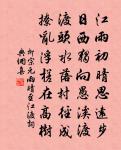 江雨初晴思遠步
日西獨向愚溪渡
渡頭水落村徑成
撩亂浮槎在高樹
柳宗元雨晴至江渡詞
典網集